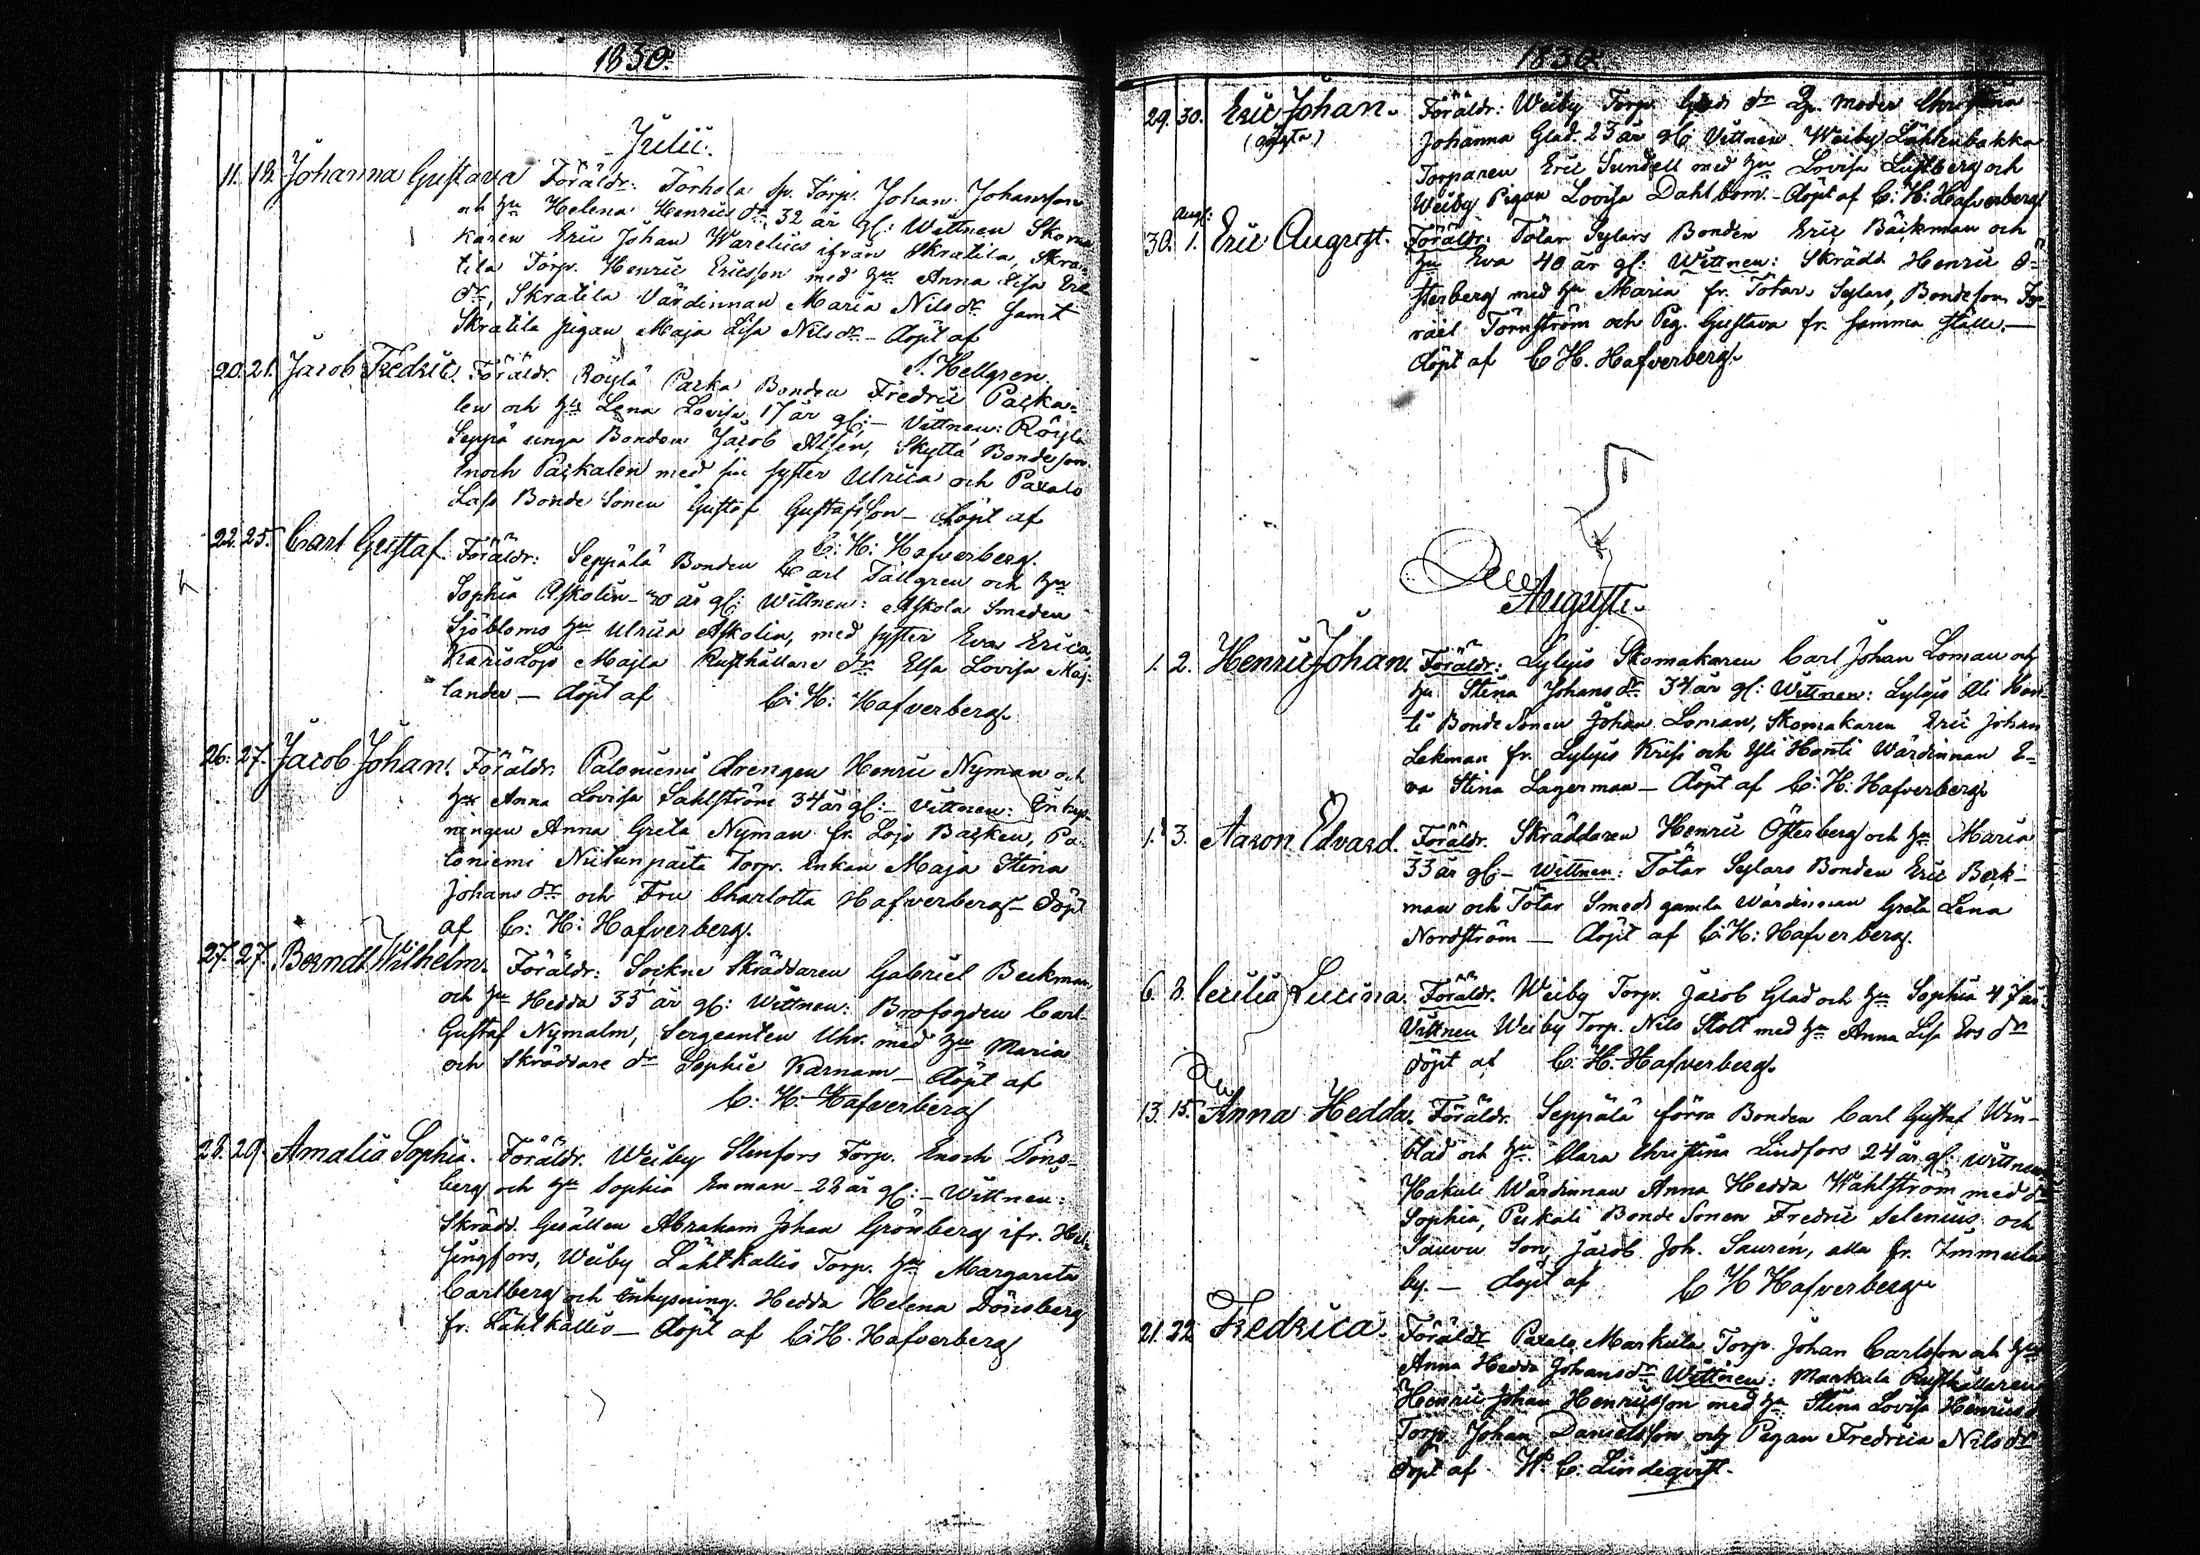 1830.
Julii.
11. 12. Johanna Gustava Föräldr: Torhola sp. Torp. Johan Johansson
och hu Helena Henricsdr 32 år gl: Wittnen Skoma
karen Eric Johan Warelius ifrån Skratila, Skra-
tila Torp. Henric Ericsson med hu Anna Lisa Eric
dr, Skratila Värdinnan Maria Nilsdr samt
Skratila pigan Maja Lisa Nilsdr - döpt af
Hellgren.
20. 21. Jacob Fredric. Föräldr. Röylä Paska Bonden Fredric Paska-
len och hu Lena Lovisa 17 år gl: - Vittnen: Röylä
Seppä unga Bonden Jacob Alfén, Skyttä Bondeson
Enoch Paskalén med sin syster Ulrica och Paxalo
Lass Bonde Sonen Gustaf Gustafsson - döpt af
C: H: Hafverberg.
22. 25. Carl Gustaf. Föräldr: Seppälä Bonden Carl Tallgren och hu
Sophia Askolin - 30 år gl: Wittnen: Askola Smeden
Sjöbloms hu Ulrica Askolin, med syster Eva Erica
Karislojo Majla Rusthållare dr Elsa Lovisa Maj-
lander - döpt af C: H: Hafverberg.
26. 27. Jacob Johan. Föräldr. Paloniemi drengen Henric Nyman och
hu Anna Lovisa Sahlström 34 år gl: - Vittnen: Enhys
ningen Anna Greta Nyman fr. Lojo Backen, Pa-
loniemi Niitunpäitä Torp. Enkan Maja Stina
Johansdr och Fru Charlotta Hafverberg - Döpt
af C: H: Hafverberg.
27. 27. Berndt Wilhelm. Föräldr: Sockne Skräddaren Gabriel Beckman
och hu Hedda 35 år gl: Wittnen: Brofogden Carl
Gustaf Nymalm, Sergeanten Uhr. med hu Maria
och Skräddare dr Sophie Karnam - döpt af
C: H: Hafverberg
28. 29. Amalia Sophia. Föräldr. Weiby Stenfors Torp. Enoch Döns-
berg och hu Sophia Enman - 28 år gl: - Wittnen:
Skrädd. Gesällen Abraham Johan Grönberg ifr. Hel-
singfors, Weiby Lähtkallio Torp. hu Margareta
Carlberg och Enhysning. Hedda Helena Dönsberg
fr. Lähtkallio - döpt af C: H. Hafverberg
1830.
29. 30. Eric Johan. Föräldr: Weiby Torp. Glads dr Moder Christina
(oägta) Johanna Glad. 23 år gl: Vittnen Weiby Lähtenbakka
Torparen Eric Sundell med hu Lovisa Lustberg och
Weiby Pigan Lovisa Dahlbom. - döpt af C: H: Hafverberg
Aug:
30. 1. Eric August. Föräldr: Totar Sylars Bonden Eric Bäckman och
hu Eva 40 år gl: Wittnen: Skrädd Henric Ö-
sterberg med hu Maria fr. Totar, Sylars, Bondeson Is-
rael Törnström och Pig. Gustava fr. samma ställe. -
döpt af C H. Hafverberg.
Augusti.
1. 2. Henric Johan. Föräldr: Lylyis Skomakaren Carl Johan Loman och
hu Stina Johansdr 34 år gl: Wittnen: Lylyis Ali Hon-
ti Bonde Sonen Johan Loman, Skomakaren Eric Johan
Lekman fr. Lylyis Krisi och Yli Honti Wärdinnan E-
va Stina Lagerman - döpt af C: H: Hafverberg
1. 3. Aaron Edvard. Föräldr. Skräddaren Henric Österberg och hu Maria
33 år gl: - Wittnen: Totar Sylars Bonden Eric Beck-
man och Totar Smeds gamla Wärdinnan Greta Lena
Nordström - döpt af C: H: Hafverberg.
6. 8. Cecilia Lucina. Föräldr. Weiby Torp. Jacob Glad och hu Sophia 47 år
Vittnen Weiby Torp. Nils Stolt med hu Anna Lisa Ersdr
döpt af C: H. Hafverberg.
13. 15. Anna Hedda. Föräldr. Seppälä förra Bonden Carl Gustaf Win-
blad och hu Clara Christina Lindfors 24 år gl: Wittnen
Hakuli Wärdinnan Anna Hedda Wahlström med dr
Sophia, Piskali Bonde Sonen Fredric Selenius och
Sauvu Son, Jacob Joh. Saurén, alla fr. Immula
by. - döpt af C H Hafverberg
21. 22. Fredrica. Föräldr Paxalo Markula Torp. Johan Carlsson och hu
Anna Hedda Johansdr Wittnen: Markula Rusthållaren
Henric Johan Henricsson med hu Stina Lovisa Henricsdr
Torp. Johan Danielsson och Pigan Fredrica Nilsdr
döpt af W. C: Lindeqvist.